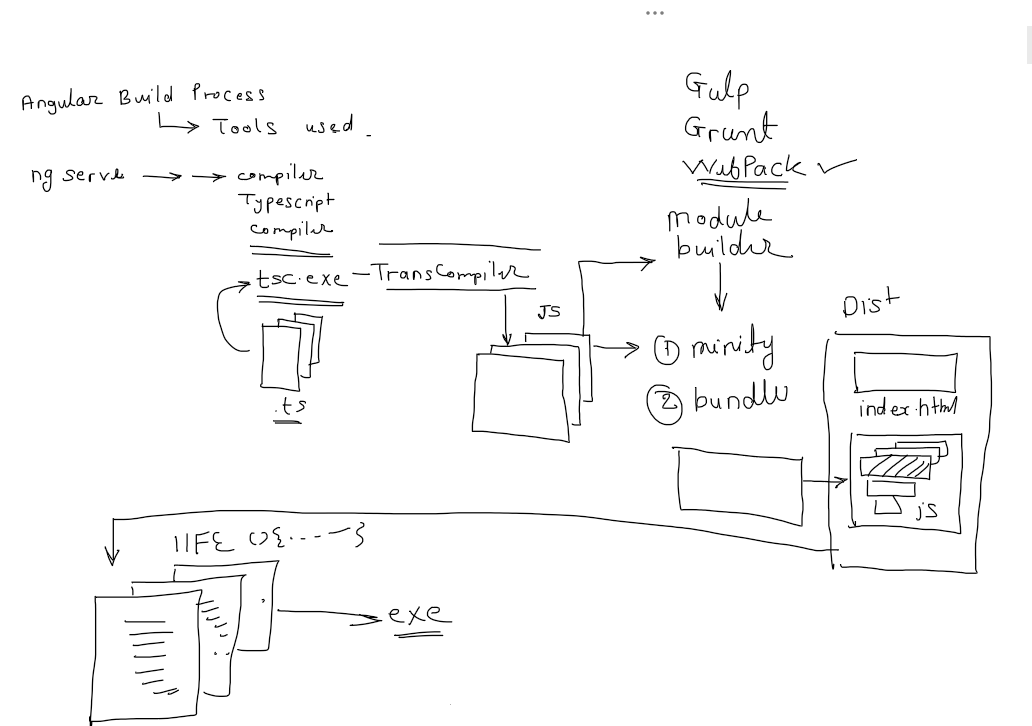 Angular Build Process
Tools used.
ng serve
compiler
Typescript
compiler
tsc.exe
TransCompiler
.ts
JS
Gulp
Grunt
WebPack
module
builder
① minify
② bundle
Dist
index.html
js
IIFE (){.....}
exe